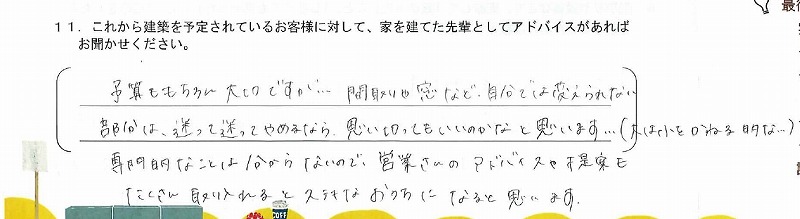 11. これから建築を予定されているお客様に対して、家を建てた先輩としてアドバイスがあれば
お聞かせください。
予算ももちろん大切ですが… 間取りや窓など、自分では変えられない
部分は、迷って迷ってやめるなら、思い切ってもいいのかなと思います…(大は小をかねる的な…)
専門的なことは分からないので、営業さんのアドバイスや提案も
たくさん取り入れるとステキなおうちになると思います。
COFF